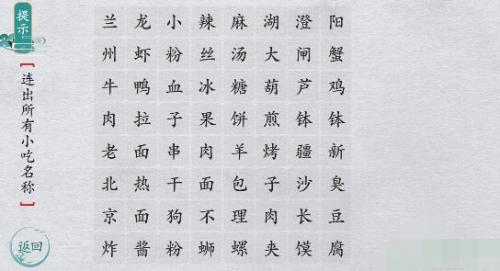 提示
连出所有小吃名称
返回
兰龙小辣麻湖澄阳
州虾粉丝汤大闸蟹
牛鸭血冰糖葫芦鸡
肉拉子果饼煎钵钵
老面串肉羊烤疆新
北热干面包子沙臭
京面狗不理肉长豆
炸酱粉螄螺夹馍腐